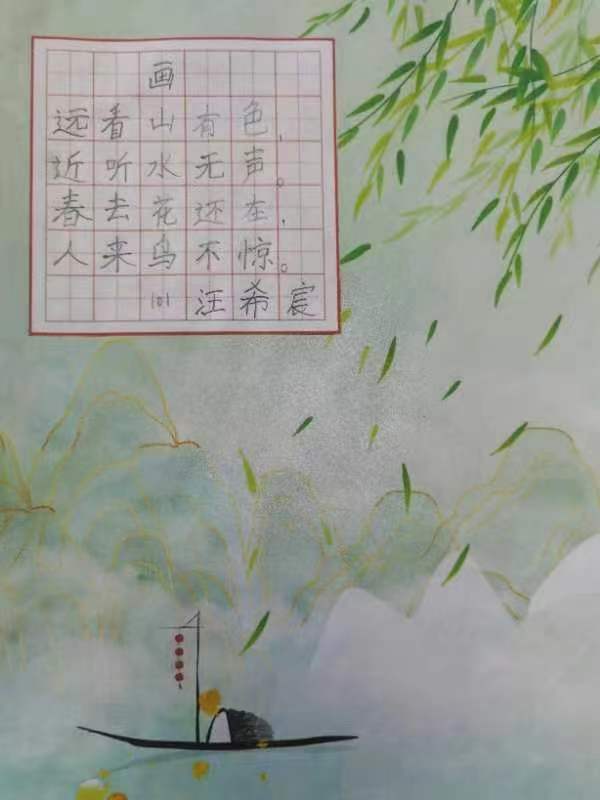 画
远看山有色，
近听水无声。
春去花还在，
人来鸟不惊。
101 汪希宸